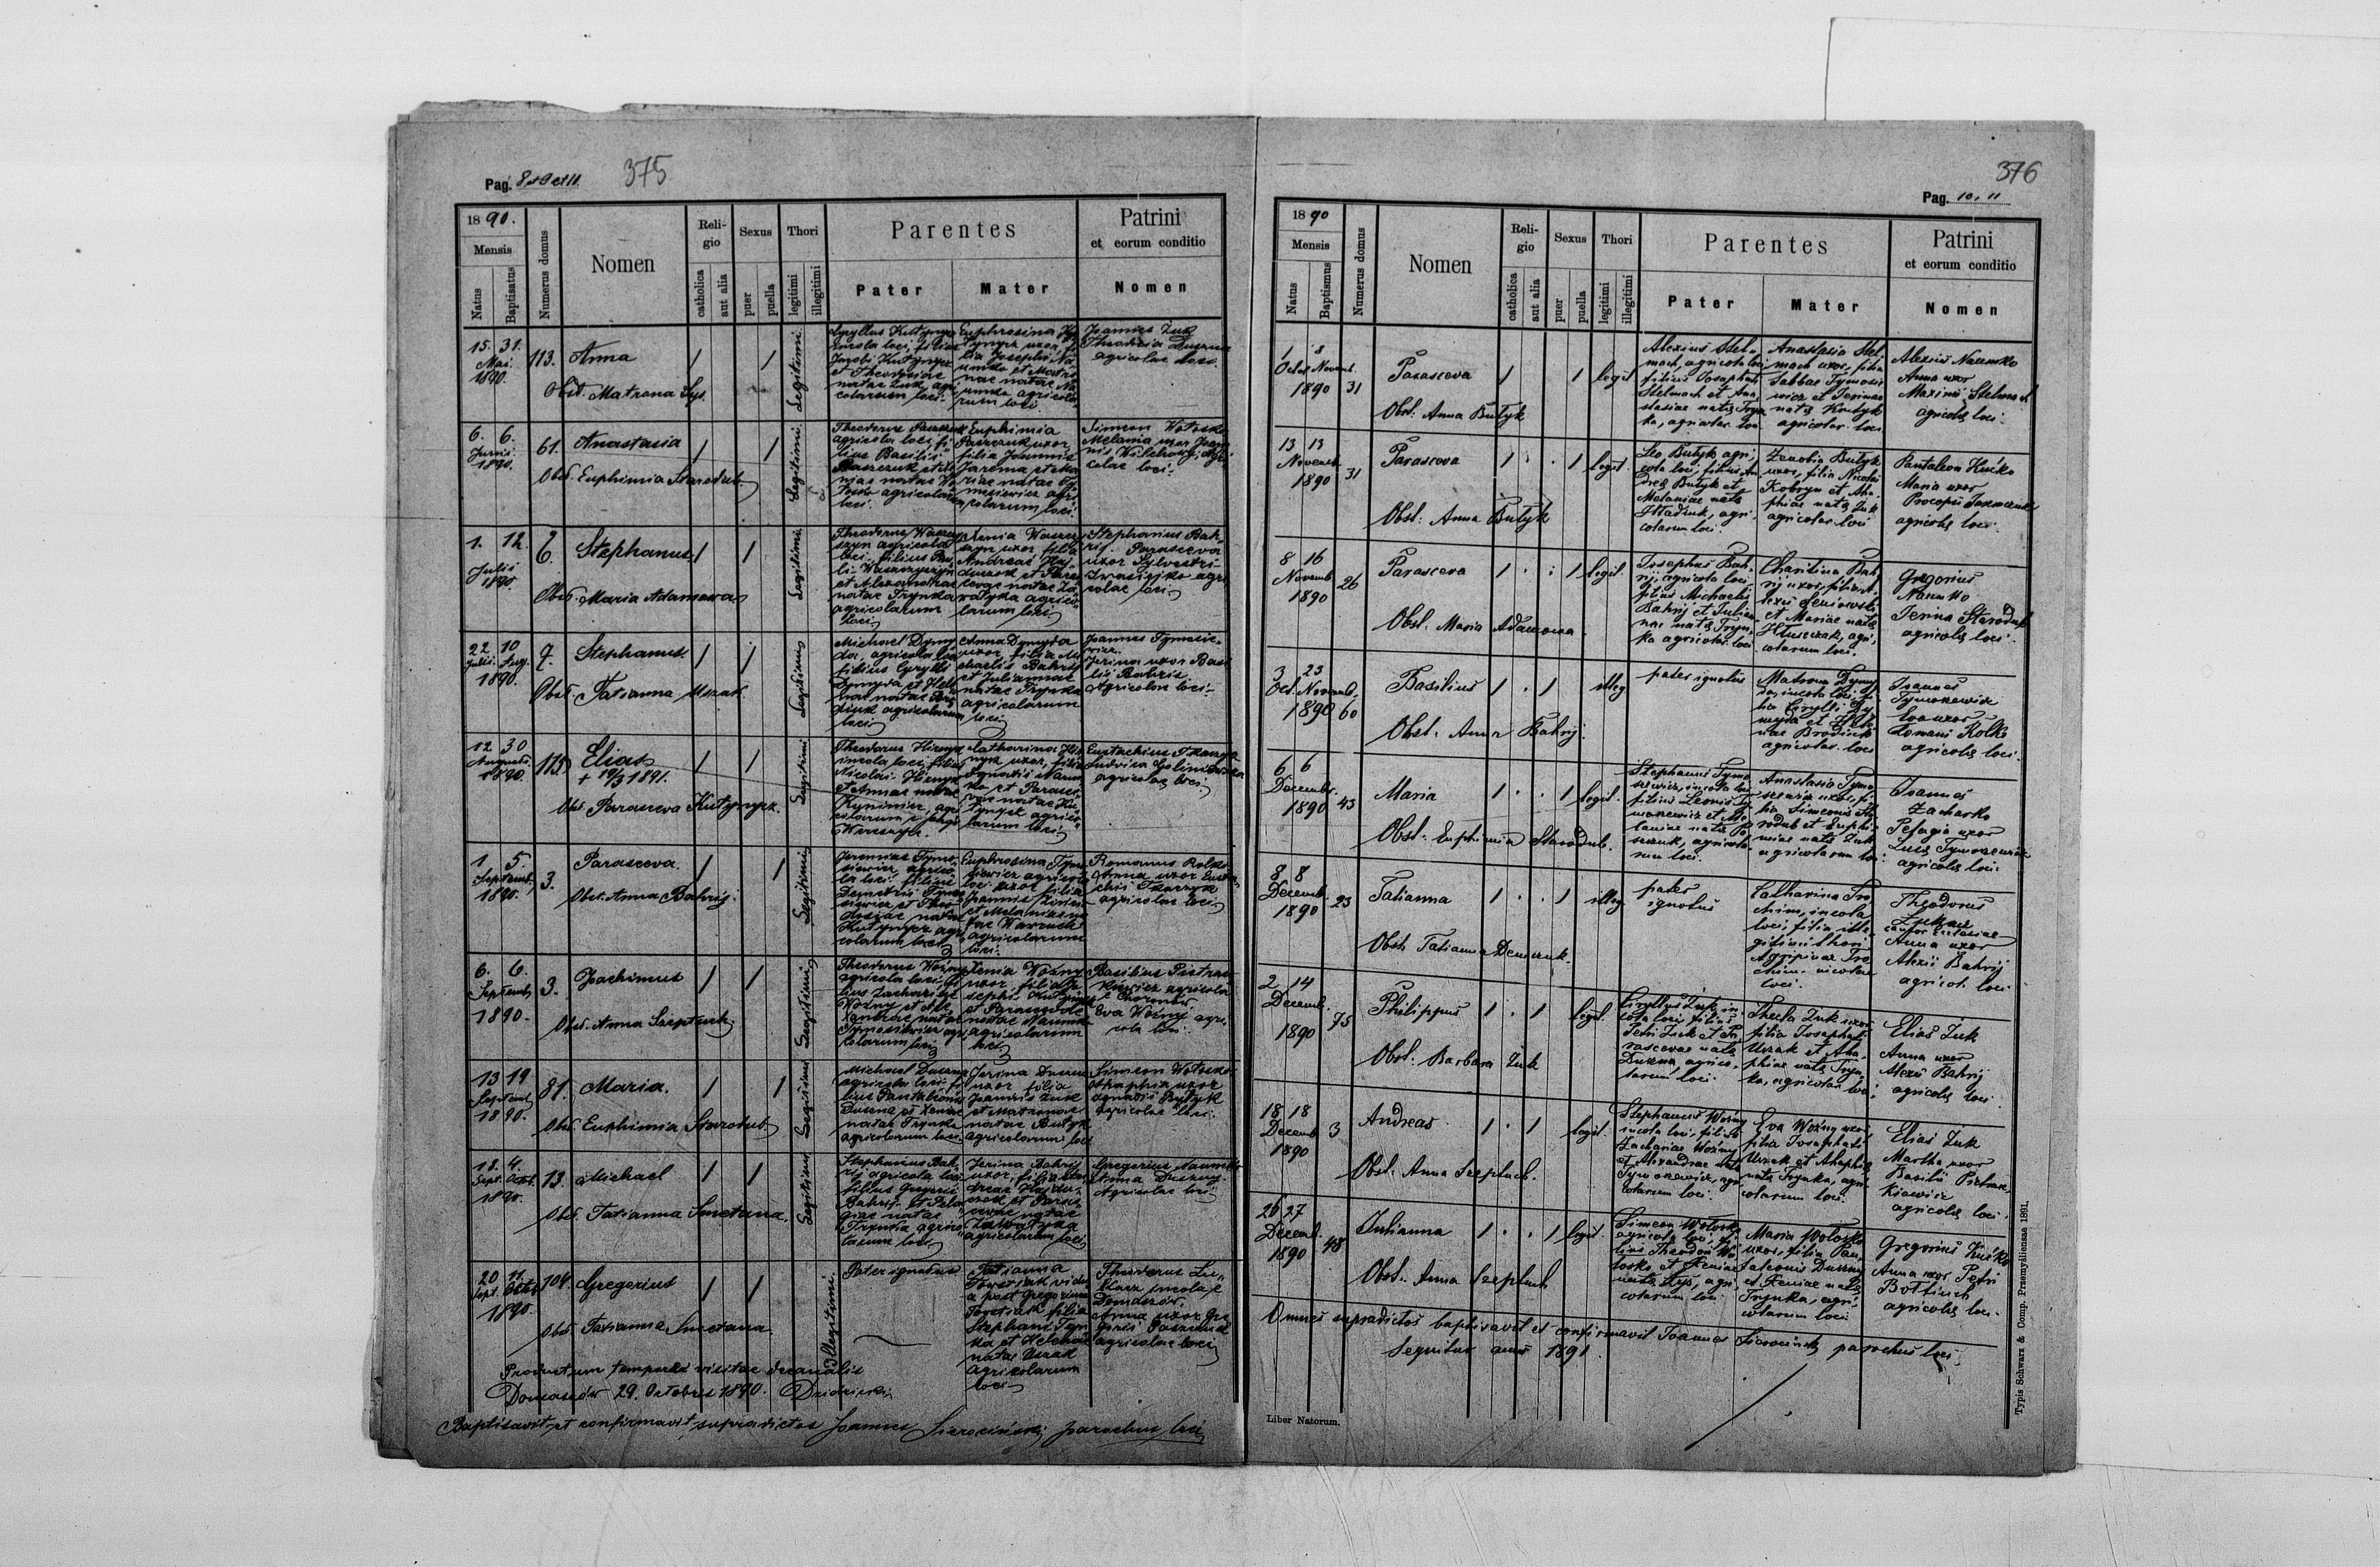 Pag. 8 et 9 et 11. 375
1890.
Mensis
Natus
Baptisatus
Numerus domus
Nomen
Reli-
gio
catholica
aut alia
Sexus
puer
puella
Thori
legitimi
illegitimi
Parentes
Pater
Mater
Patrini
et eorum conditio
Nomen
15. 31.
Mai
1890.
113. Anna
Obst. Matrona Łys.
Legitimi
Cyryllus Kutynycz
incola loci, filius
Jacobi Kutynycz
et Theodosiae
natae Żuk agri
colarum loci
Euphrosina Ku
tynycz uxor, fi
lia Josephi Na
umko et Matro
nae natae Na
umko agricola
rum loci
Joannes Żuk
Theodosia Duszna
agricolae loci
6. 6.
Junii
1890.
61. Anastasia
Obst. Euphimia Starodub
Legitimi
Theodorus Paszczuk
agricola loci fi
lius Basilii
Paszczuk et
agricolarum
loci.
Euphimia
Paszczuk uxor
filia Joannis
Jarema et Ma
riae natae
agri
colarum loci.
Simeon Wołosko
Melania uxor Joan
nis agri
colae loci.
1. 12.
Julii
1890.
6. Stephanus
Obst. Maria Adamowa
Legitimi
agricola
loci filius Basi
li
et Alexandrae
natae Trynka
agricolarum
loci
Xenia
uxor filia
Andreae Haj
duczok et Paras
cevae natae Za
watyka agrico
larum loci
Stephanus Bah
rij. Parasceva
uxor Sylvestri
agri
colae loci
22. 10
Julii. Aug.
1890.
7. Stephanus.
Obst. Tatianna Uszak.
Legitimi
Michael Dymy
da, agricola loci
filius Cyrylli
Dymyda et Hele
nae natae Bro
dziuk agricolarum
loci
Anna Dymyda
uxor, filia Mi
chaelis Bahrij
et Juliannae
natae Trynka
agricolarum
loci
Joannes Tymosie
wicz.
Jerina uxor Basi
lii Bahrij
Agricolae loci
12. 30
Augusti
1890.
115. Elias
+ 19/3 1891.
Obst. Parasceva Kutynycz.
Legitimi
Theodorus Hirnyk
incola loci, filius
Nicolai Hirnyk
et Annae natae
agri
colarum e pago
Catharina Hir
nyk uxor, filia
Ignatii Naum
ko et Parasce
vae natae Ku
tynycz agrico
larum loci
Eustachius Tkaczyk
Ludvica
agricolae loci
1. 5.
Septemb.
1890.
3. Parasceva.
Obst. Anna Bahrij.
Legitimi
Jeremias Tymo
siewicz agrico
la loci filius
Demetrii Tymo
siewicz et Theo
dosiae natae
Kutynycz agri
colarum loci
Euphrosina Tymo
siewicz agricola
loci uxor filia
Joannis
et Melaniae na
tae
agricolarum
loci.
Romanus Rolko
Anna uxor Eusta
chii Tkaczyk
agricolae loci
6. 6.
Septemb
1890.
3. Joachimus
Obst. Anna Szeptuch
Legitimi
Theodorus Woźny
agricola loci, fi
lius Zachariae
Woźny et Ale
xandrae natae
Tymosiewicz agri
colarum loci
Xenia Woźny
uxor, filia Jo
sephi Kutynycz
et Parascevae
natae Naumko
agricolarum
loci
Basilius Pietras
kiewicz agricola
e
Eva Woźny agri
cola loci.
13 19
Septemb
1890.
81. Maria.
Obst. Euphimia Starodub
Legitimi
Michael Duszna
agricola loci, fi
lius Pantaleonis
Duszna et Xeniae
natae Trynka
agricolarum loci.
Jerina Duszna
uxor filia
Joannis Żuk
et Matronae
natae Butyk
agricolarum loci
Simeon Wołosko
Ahaphia uxor
Ignatii Butyk
agricolae loci.
18. 4.
Sept. Octob.
1890.
13. Michael
Obst. Tatianna Smetana.
Legitimi
Stephanus Bah
rij agricola loci
filius Gregorii
Bahrij et Pela
giae natae
Trynka agrico
larum loci
Jerina Bahrij
uxor, filia An
dreae Hajdu
czok et Paras
cevae natae
Zawatyka
agricolarum loci
Gregorius Naumko
Anna Duszny
Agricolae loci
20 11
Sept. Octob.
1890.
104. Gregorius
Obst. Tatianna Smetana.
Illegitimi.
Pater ignotus
Tatianna
vidu
a post Gregorium
filia
Stephani Tryn
ka et Helenae
natae Uszak
agricolarum
loci
Theodorus Żu
kacz incola e
Domaszów.
Anna uxor Gre
gorii Paszczuk
agricolae loci
Productum tempore visitae decanalis
Domaszów 29. Octobris 1890.
Baptisavit et confirmavit supradictos Joannes Sierociński parochus loci
376
Pag. 10, 11
1890
Mensis
Natus
Baptismus
Numerus domus
Nomen
Reli-
gio
catholica
aut alia
Sexus
puer
puella
Thori
legitimi
illegitimi
Parentes
Pater
Mater
Patrini
et eorum conditio
Nomen
1 8
Octob. Novemb.
1890 31
Parasceva
Obst. Anna Butyk
legit.
Alexius Stel-
mach, agricola loci
filius Josaphati
Stelmach et Ana
stasiae natae Tryn
ka, agricolar. loci
Anastasia Stel
mach uxor, filia
Sabbae Tymosie
wicz et Jerinae
natae Kutyk
agricolar. loci
Alexius Naumko
Anna uxor
Maximi Stelmach
agricolae loci.
13 13
Novemb.
1890 31
Parasceva
Obst. Anna Butyk
legit.
Leo Butyk agri
cola loci, filius An
dreae Butyk et
Melaniae natae
Hładiuk, agri
colarum loci
Zenobia Butyk
uxor, filia Nicolai
Kobryn et Aha
phiae natae Żuk
agricolar. loci
Pantaleon Kućko
Maria uxor
Procopii
agricolae loci.
8 16
Novemb.
1890 26
Parasceva
Obst. Maria Adamowa.
legit.
Josephus Bah
rij, agricola loci
filius Michaelis
Bahrij et Julian
nae natae Tryn
ka agricolar. loci
Charitina Bah
rij uxor, filia A
lexii
et Mariae natae
Huszczak, agri
colarum loci.
Gregorius
Naumko
Jerina Starodub
agricolae loci.
3 23
Oct. Novemb.
1890 60
Basilius
Obst. Anna Bahrij.
illeg
pater ignotus
Matrona Dymy
da, incola loci, fi
lia Cirylli Dy
myda et Hele
nae Brodziuk
agricolar. loci
Joannes
Tymosiewicz
Eva uxor
Romani Rolko
agricolae loci.
6 6
Decembr.
1890 43
Maria
Obst. Euphimia Starodub.
legit.
Stephanus Tymo
szewicz, incola loci
filius Leonis Ty
moszewicz et Me
laniae natae Pa
szczuk, agricola
rum loci.
Anastasia Tymo
szewicz uxor, fi
lia Simeonis Sta
rodub et Euphi
miae natae Żuk
agricolarum loci
Joannes
Zacharko
Pelagia uxor
Tymoszewicz
agricolae loci.
8 8
Decemb.
1890 23
Tatianna
Obst. Tatianna Demczuk.
illeg
pater
ignotus
Catharina Tro
chim, incola
loci, filia ille
gitimi thori
Agripinae Tro
chim incolae
loci.
Theodorus
Żukacz
cantor Ecclesiae
Anna uxor
Alexii Bahrij
agricol. loci
2 14
Decemb.
1890 75
Philippus
Obst. Barbara Żuk
legit.
Cirillus Żuk in
cola loci, filius
Petri Żuk et Pa
rascevae natae
Duszna agrico
larum loci.
Thecla Żuk uxor
filia Josaphati
Uszak et Aha
phiae natae Tryn
ka, agricolar. loci
Elias Żuk
Anna uxor
Alexii Bahrij
agricolae loci.
18 18
Decemb.
1890 3
Andreas
Obst. Anna Szeptuch.
legit.
Stephanus Woźny
incola loci, filius
Zachariae Woźny
et Alexandrae natae
Tymoszewicz, agri
colarum loci.
Eva Woźny uxor
filia Josaphati
Uszak et Ahaphiae
natae Trynka, agri
colarum loci.
Elias Żuk
Martha uxor
Basilii Pietrasz
kiewicz
agricolae loci.
26 27
Decemb.
1890 48
Julianna
Obst. Anna Szeptuch
legit.
Simeon Wołosko
agricola loci, fi
lius Theodori Wo
łosko et Xeniae
natae Łys, agri
colarum loci
Maria Wołosko
uxor, filia Pan
taleonis Duszny
et Xeniae natae
Trynka, agri
colarum loci
Gregorius Kućko
Anna uxor Petri
agricolae loci.
Omnes supradictos baptisavit et confirmavit Joannes Sierociński parochus loci.
Sequitur annus 1891.
Liber Natorum.
Typis Schwarz & Comp. Przemyśliensae 1891.